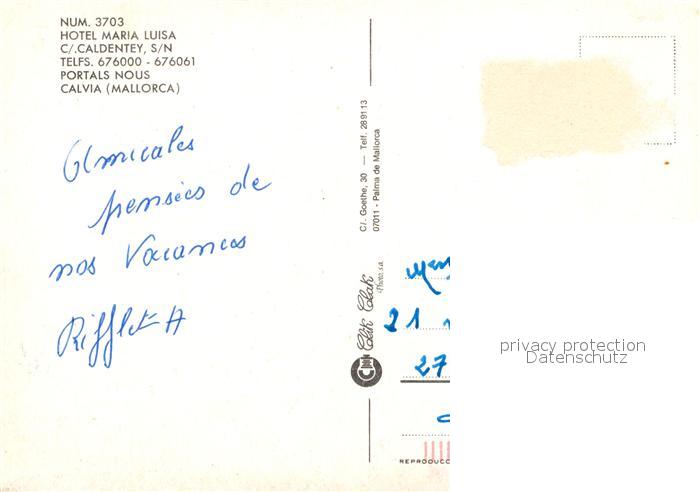 NUM. 3703
HOTEL MARIA LUISA
C/.CALDENTEY, S/N
TELFS. 676000 - 676061
PORTALS NOUS
CALVIA (MALLORCA)
Amicales
pensées de
nos Vacances
Rifflet A
C/. Goethe, 30 — Telf. 28 91 13
07011 - Palma de Mallorca
Clik Clak
Photo, s.a.
21
27
REPRODUCC
privacy protection
Datenschutz